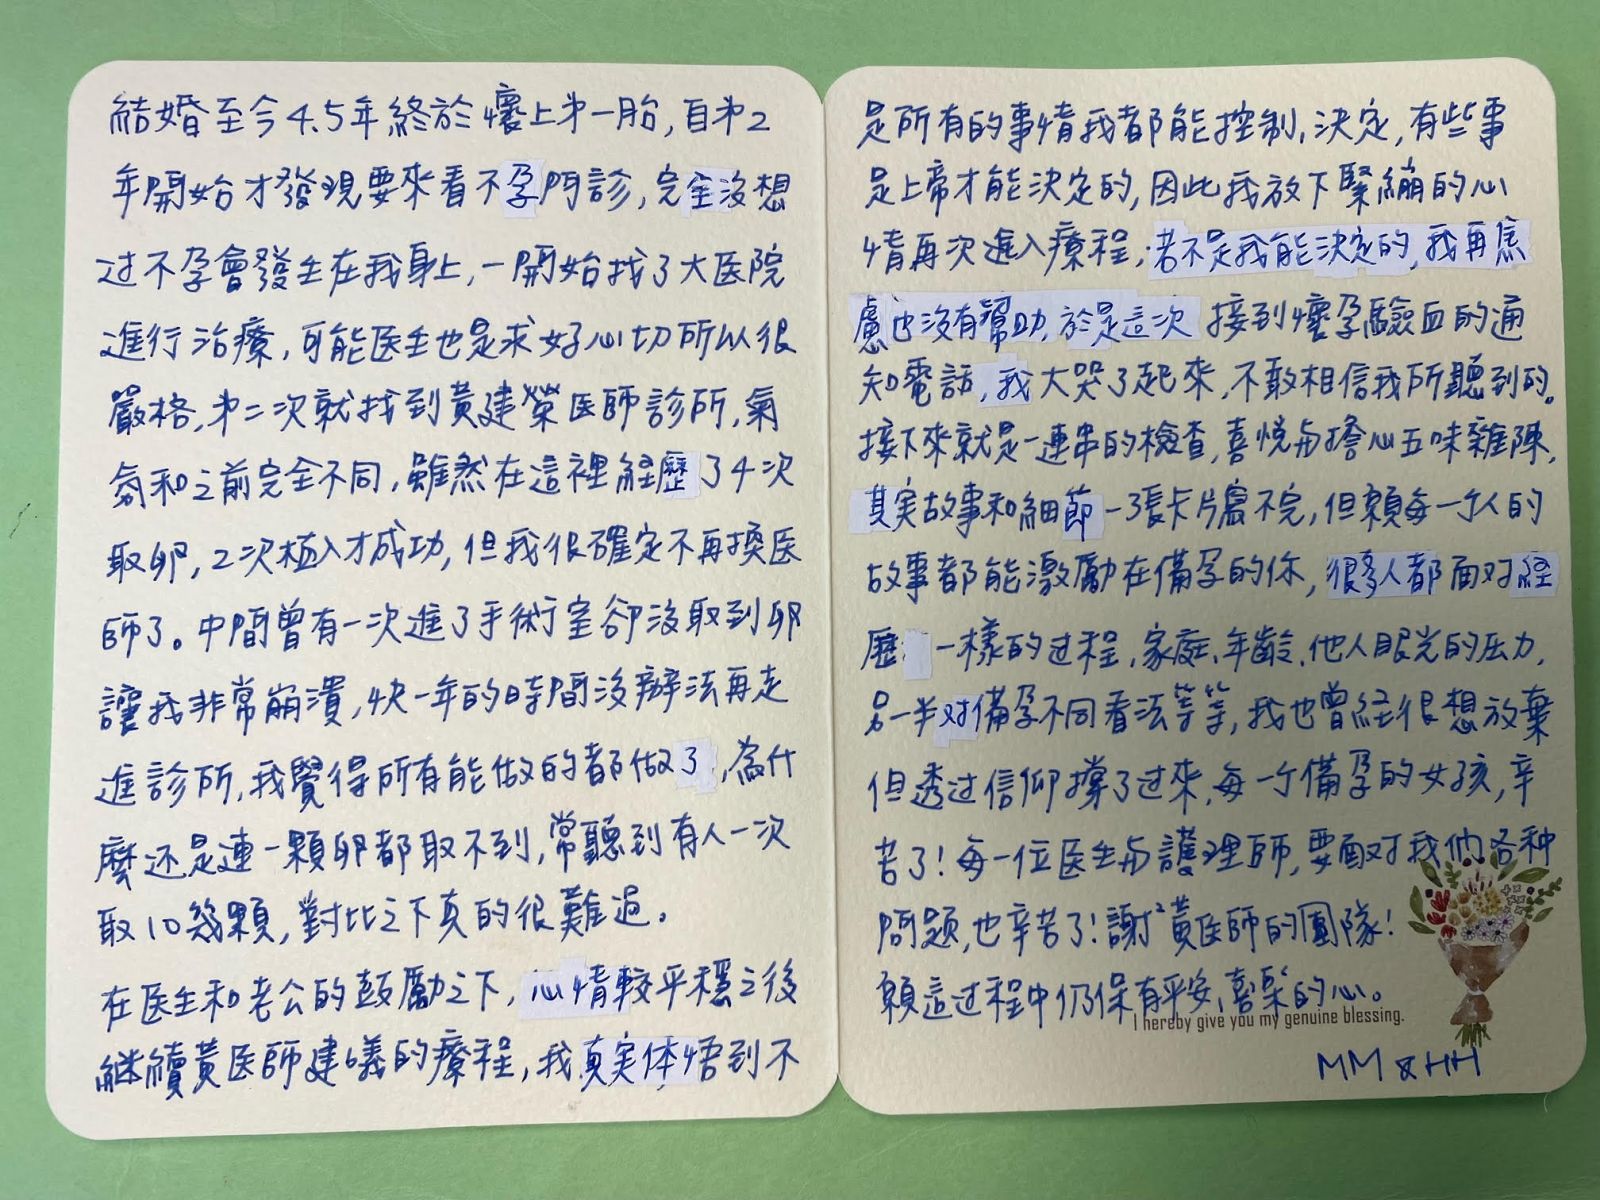 結婚至今4.5年終於懷上第一胎,自第2
年開始才發現要來看不孕門診,完全沒想
过不孕會發生在我身上,一開始找了大医院
進行治療,可能医生也是求好心切所以很
嚴格,第二次就找到黃建榮医師診所,氣
氛和之前完全不同,雖然在這裡経歷了4次
取卵,2次植入才成功,但我很確定不再換医
師了。中間曾有一次進了手術室卻沒取到卵
讓我非常崩潰,快一年的時間沒辦法再走
進診所,我覺得所有能做的都做了,為什
麼还是連一顆卵都取不到,常聽到有人一次
取10幾顆,對比之下真的很難過。
在医生和老公的鼓勵之下,心情較平穩之後
継續黃医師建議的療程,我真実体悟到不
是所有的事情我都能控制、決定,有些事
是上帝才能決定的,因此我放下緊繃的心
情再次進入療程;若不是我能決定的,我再焦
慮也沒有幫助,於是這次接到懷孕驗血的通
知電話,我大哭了起來,不敢相信我所聽到的。
接下來就是一連串的檢查,喜悅与擔心五味雜陳,
其実故事和細節一張卡片寫不完,但願每一个人的
故事都能激勵在備孕的你,很多人都面对経
歷一樣的过程,家庭、年齡、他人眼光的压力,
另一半对備孕不同看法等等,我也曾経很想放棄
但透过信仰撐了过來,每一个備孕的女孩,辛
苦了!每一位医生与護理師,要面对我們各种
問題,也辛苦了!謝²黃医師的團隊!
願這过程中仍保有平安、喜樂的心。
I hereby give you my genuine blessing.
MM & HH